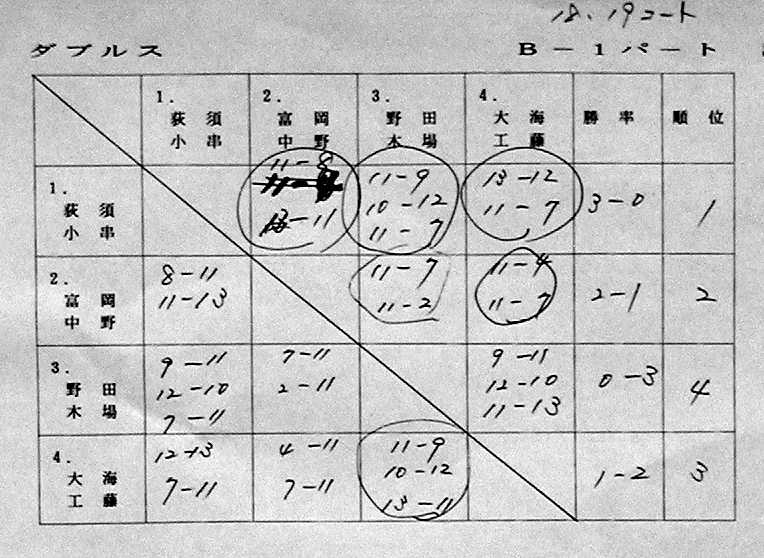 18、19コート
ダブルス B－1パート
1. 2. 3. 4.
荻須 富岡 野田 大海 勝率 順位
小串 中野 木場 工藤
11-8
1. 11-9 13-12
荻須 10-12 11-7 3-0 1
小串 13-11 11-7
2. 8-11 11-7 11-4
富岡 11-13 11-2 11-7 2-1 2
中野
3. 9-11 7-11 9-11
野田 12-10 2-11 12-10 0-3 4
木場 7-11 11-13
4. 12-13 4-11 11-9
大海 7-11 7-11 10-12 1-2 3
工藤 13-11